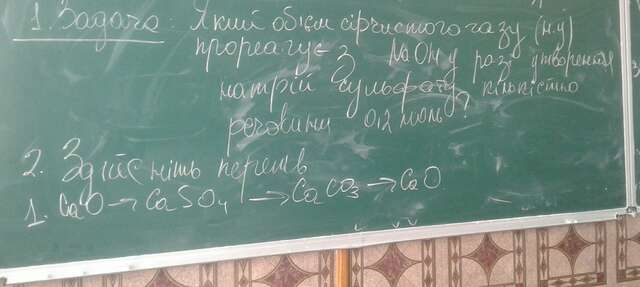 1. Задача: Який об'єм сірчистого газу (н.у)
прореагує з NaOH у разі утворення
натрій сульфату кількістю
речовини 0,2 моль?
2. Здійсніть перетв
1. CaO → CaSO4 → CaCO3 → CaO